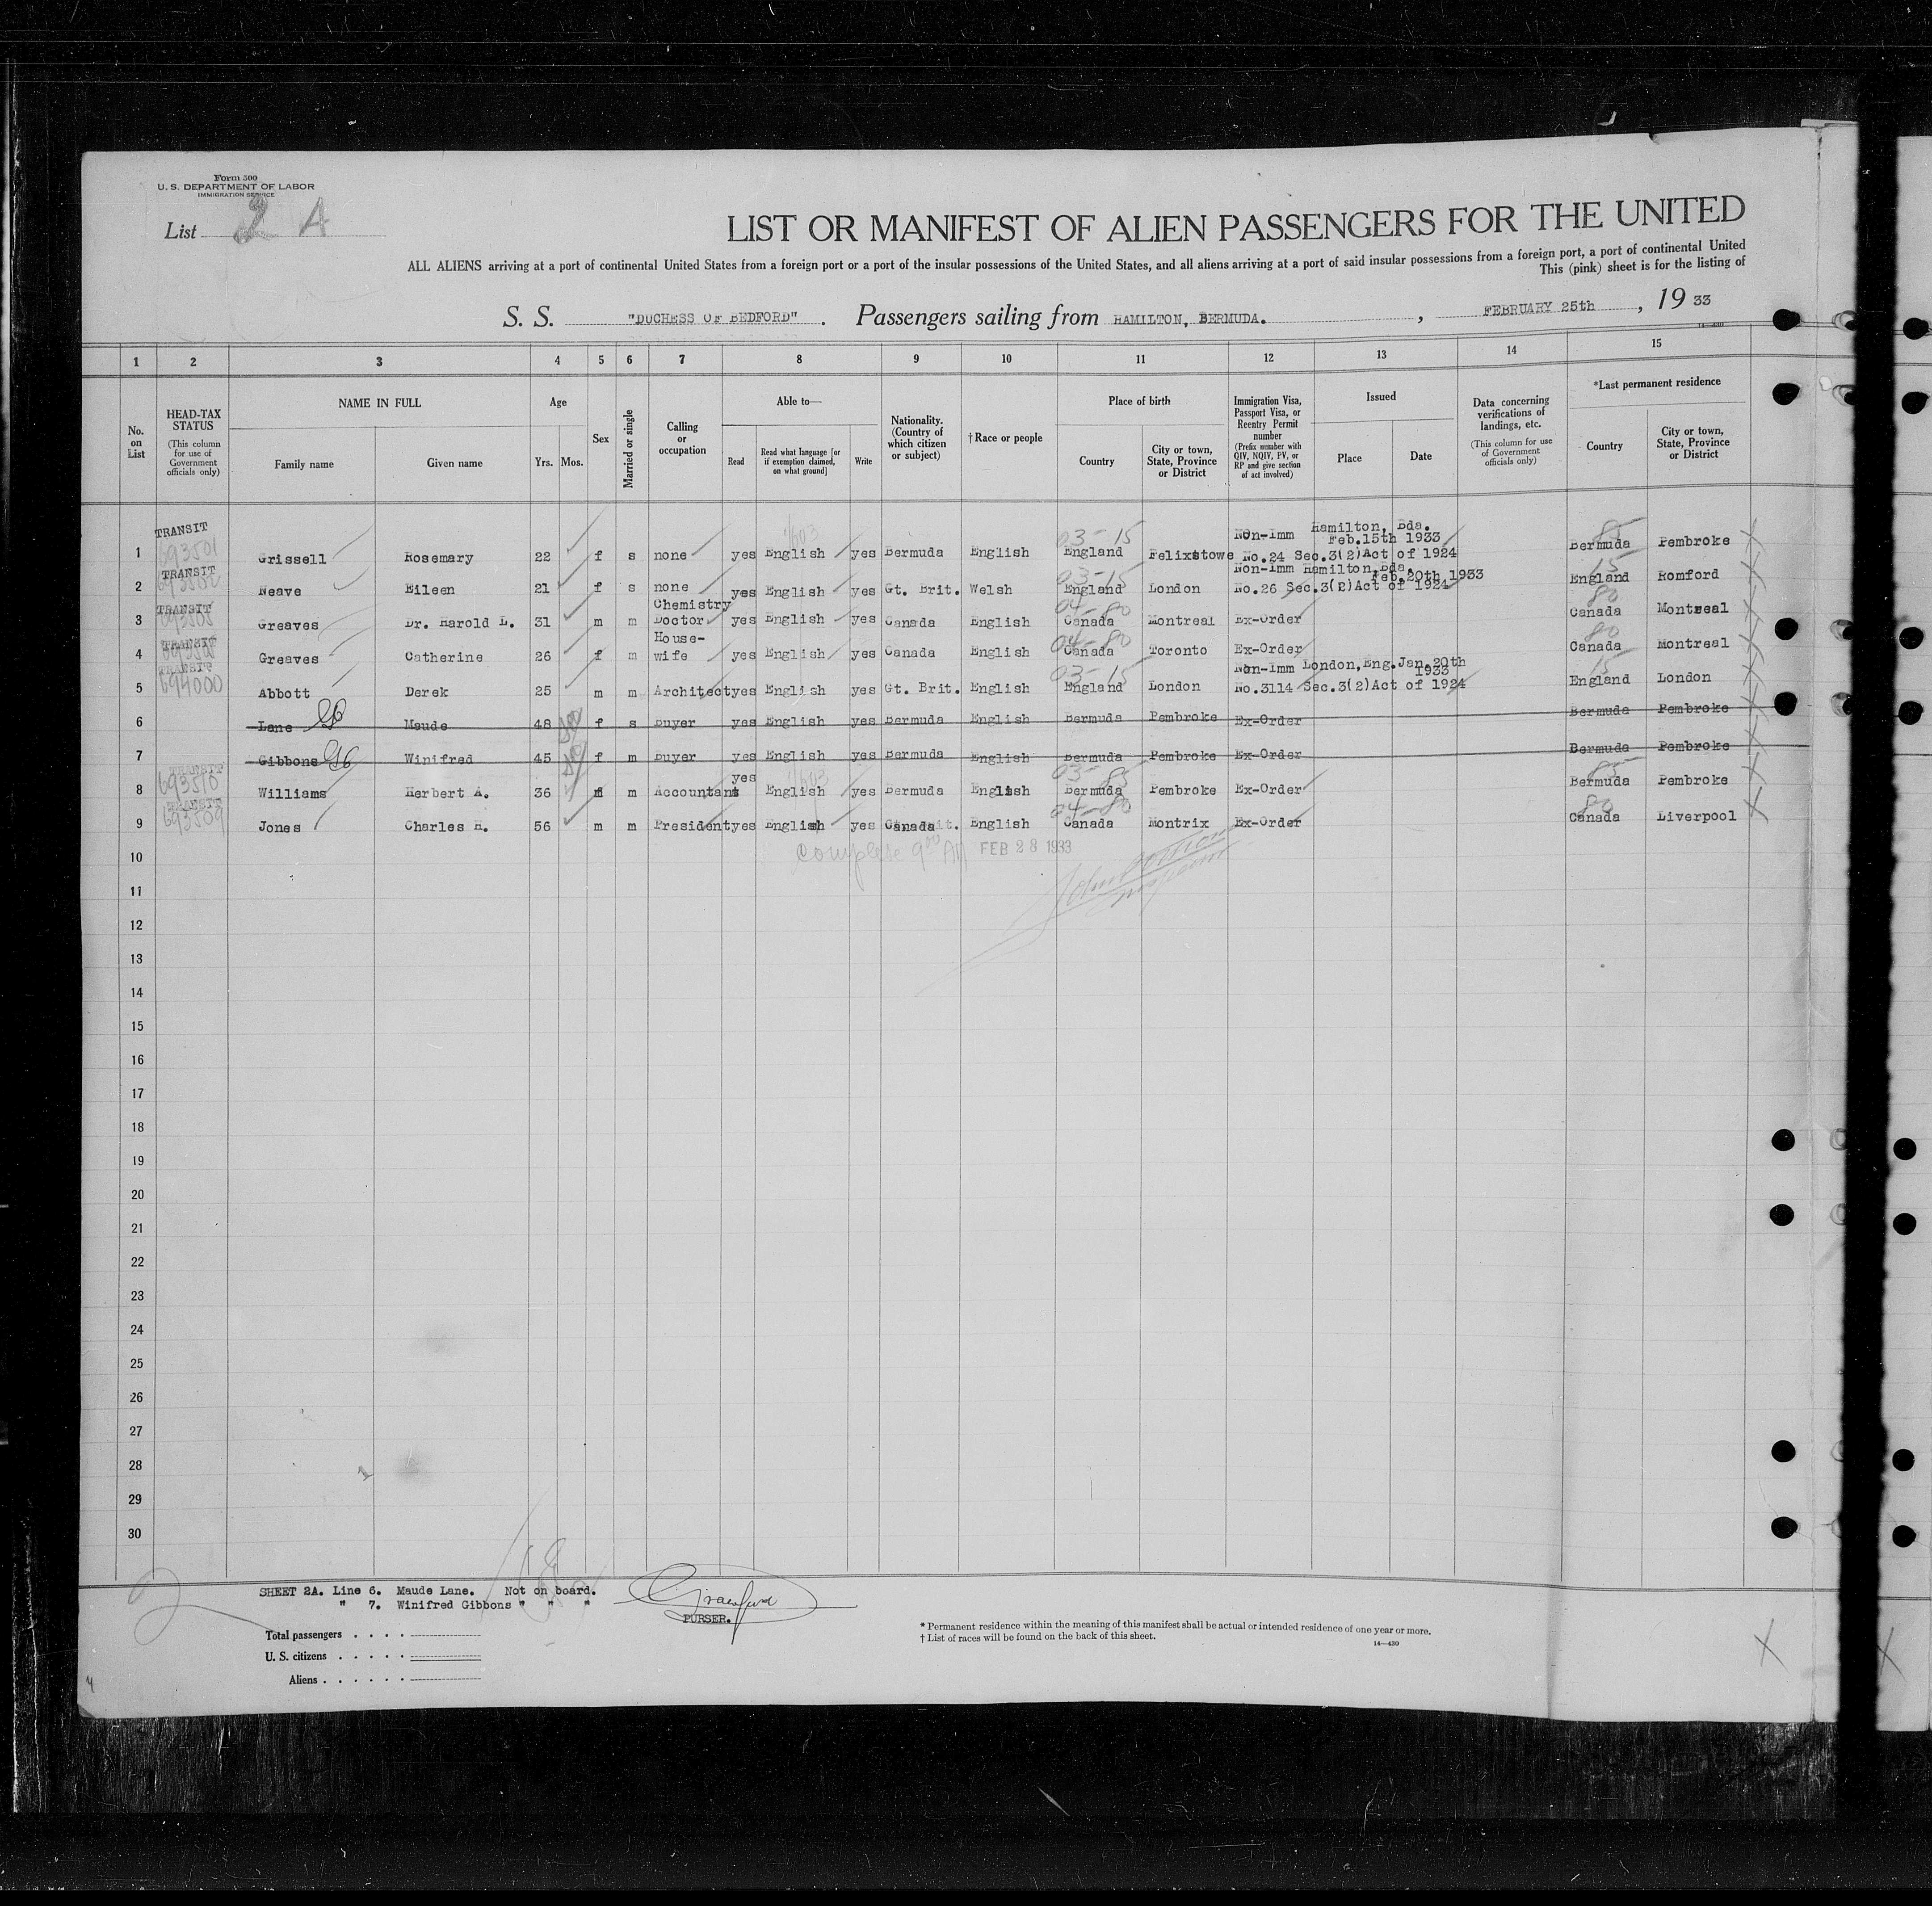 Form 500
U. S. DEPARTMENT OF LABOR
IMMIGRATION SERVICE
List 2 A
LIST OR MANIFEST OF ALIEN PASSENGERS FOR THE UNITED
ALL ALIENS arriving at a port of continental United States from a foreign port or a port of the insular possessions of the United States, and all aliens arriving at a port of said insular possessions from a foreign port, a port of continental United
This (pink) sheet is for the listing of
S. S. "DUCHESS OF BEDFORD". Passengers sailing from HAMILTON, BERMUDA. , FEBRUARY 25th , 19 33
14—430
1 2 3 4 5 6 7 8 9 10 11 12 13 14 15
No. on List
HEAD-TAX STATUS (This column for use of Government officials only)
NAME IN FULL
Family name Given name
Age
Yrs. Mos.
Sex
Married or single
Calling or occupation
Able to—
Read
Read what language [or if exemption claimed, on what ground]
Write
Nationality. (Country of which citizen or subject)
†Race or people
Place of birth
Country
City or town, State, Province or District
Immigration Visa, Passport Visa, or Reentry Permit number (Prefix number with QIV, NQIV, PV, or RP and give section of act involved)
Issued
Place Date
Data concerning verifications of landings, etc. (This column for use of Government officials only)
*Last permanent residence
Country
City or town, State, Province or District
1 TRANSIT 693501 Grissell Rosemary 22 f s none yes English yes Bermuda English 03-15 England Felixstowe Non-Imm No.24 Sec.3(2)Act of 1924 Hamilton, Bda. Feb.15th 1933 85 Bermuda Pembroke
2 TRANSIT 693502 Neave Eileen 21 f s none yes English yes Gt. Brit. Welsh 03-15 England London Non-Imm No.26 Sec.3(2)Act of 1924 Hamilton,Bda. Feb.20th 1933 15 England Romford
3 TRANSIT Greaves Dr. Harold L. 31 m m Chemistry Doctor yes English yes Canada English 04-80 Canada Montreal Ex-Order 80 Canada Montreal
4 TRANSIT Greaves Catherine 26 f m House-wife yes English yes Canada English 04-80 Canada Toronto Ex-Order 80 Canada Montreal
5 TRANSIT 694000 Abbott Derek 25 m m Architect yes English yes Gt. Brit. English 03-15 England London Non-Imm No.3114 Sec.3(2)Act of 1924 London,Eng. Jan.20th 1933 15 England London
6 Lane Maude 48 f s Buyer yes English yes Bermuda English Bermuda Pembroke Ex-Order Bermuda Pembroke
7 Gibbons Winifred 45 f m Buyer yes English yes Bermuda English Bermuda Pembroke Ex-Order Bermuda Pembroke
8 TRANSIT 693510 Williams Herbert A. 36 m m Accountant yes English yes Bermuda English 03-85 Bermuda Pembroke Ex-Order 85 Bermuda Pembroke
9 TRANSIT 693509 Jones Charles H. 56 m m President yes English yes Canada English 04-80 Canada Montrix Ex-Order 80 Canada Liverpool
complete 9 00 AM FEB 28 1933
10
11
12
13
14
15
16
17
18
19
20
21
22
23
24
25
26
27
28
29
30
SHEET 2A. Line 6. Maude Lane. Not on board.
" 7. Winifred Gibbons " " "
PURSER.
Total passengers . . . .
U. S. citizens . . . . .
Aliens . . . . . .
* Permanent residence within the meaning of this manifest shall be actual or intended residence of one year or more.
† List of races will be found on the back of this sheet.
14—430